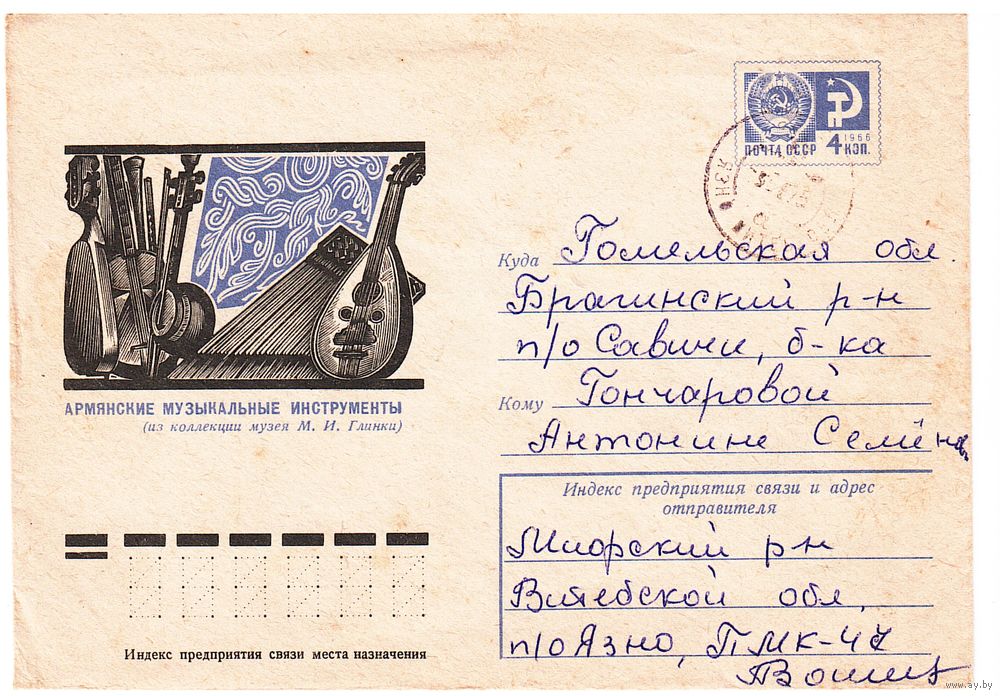 ПОЧТА СССР 4 1966 КОП.
Куда Гомельская обл
Брагинский р-н
п/о Савичи, б-ка
Кому Гончаровой
Антонине Семёнов.
АРМЯНСКИЕ МУЗЫКАЛЬНЫЕ ИНСТРУМЕНТЫ
(из коллекции музея М. И. Глинки)
Индекс предприятия связи и адрес
отправителя
Миорский р-н
Витебской обл,
п/о Язно, ПМК-47
Индекс предприятия связи места назначения
www.ay.by